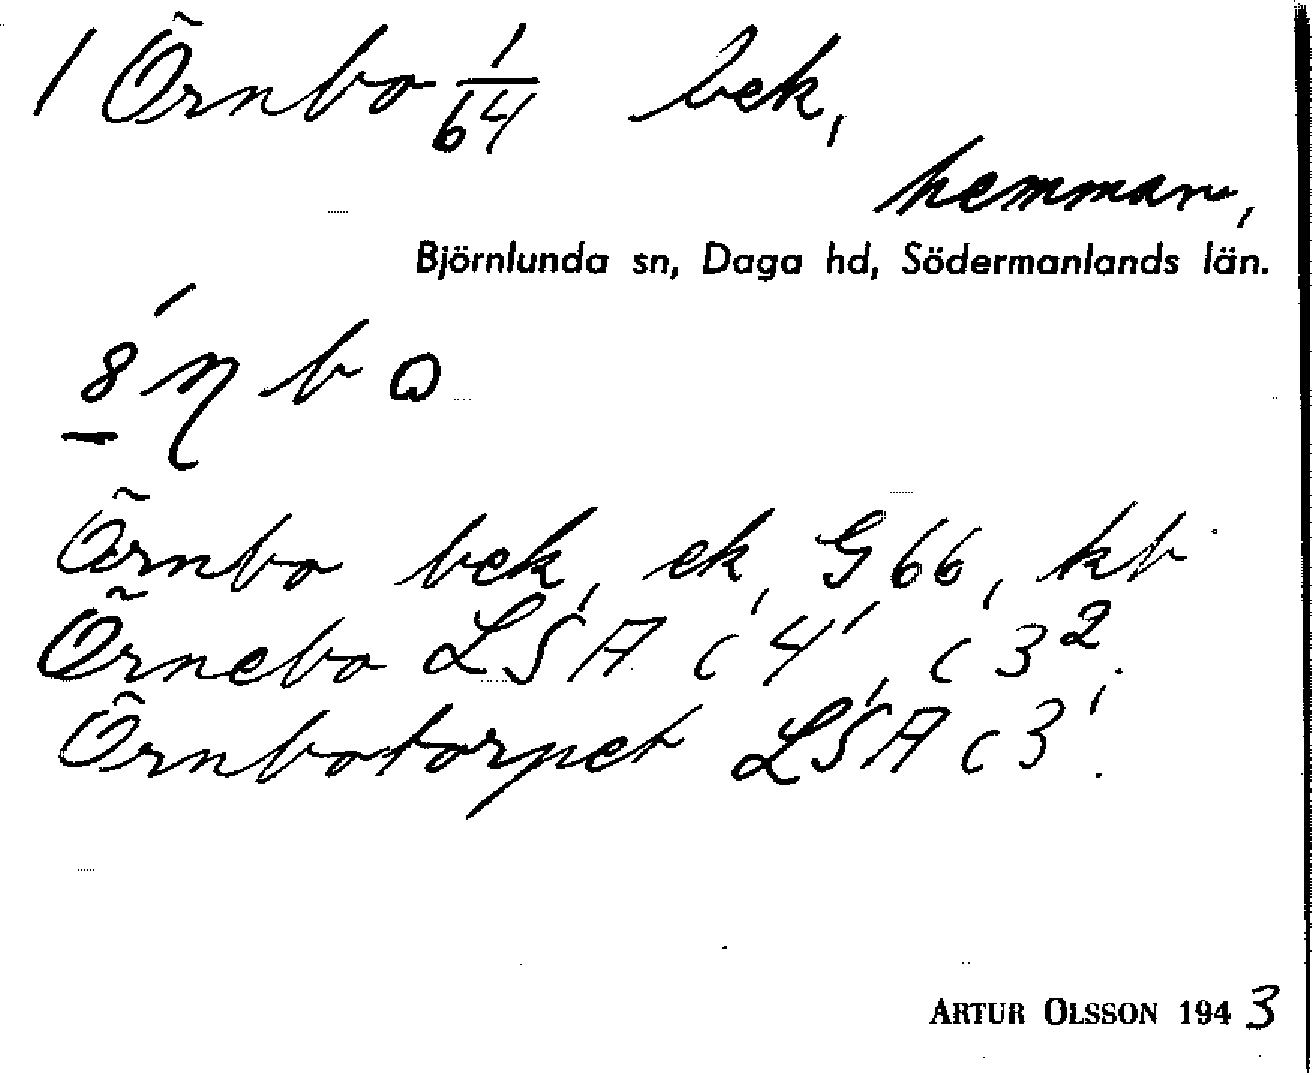 1 Örnbo 1/64 bek,
hemman,
Björnlunda sn, Daga hd, Södermanlands län.
Örnbo bek, ek, G66, kb
Örnebo LSA C 4¹, C 3².
Örnbotorpet LSA C 3¹.
ARTUR OLSSON 1943